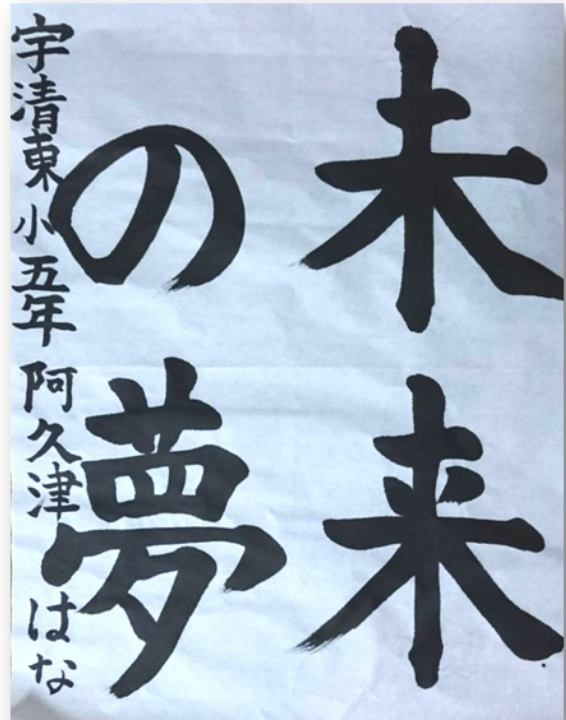 未来
の夢
宇清東小五年阿久津はな